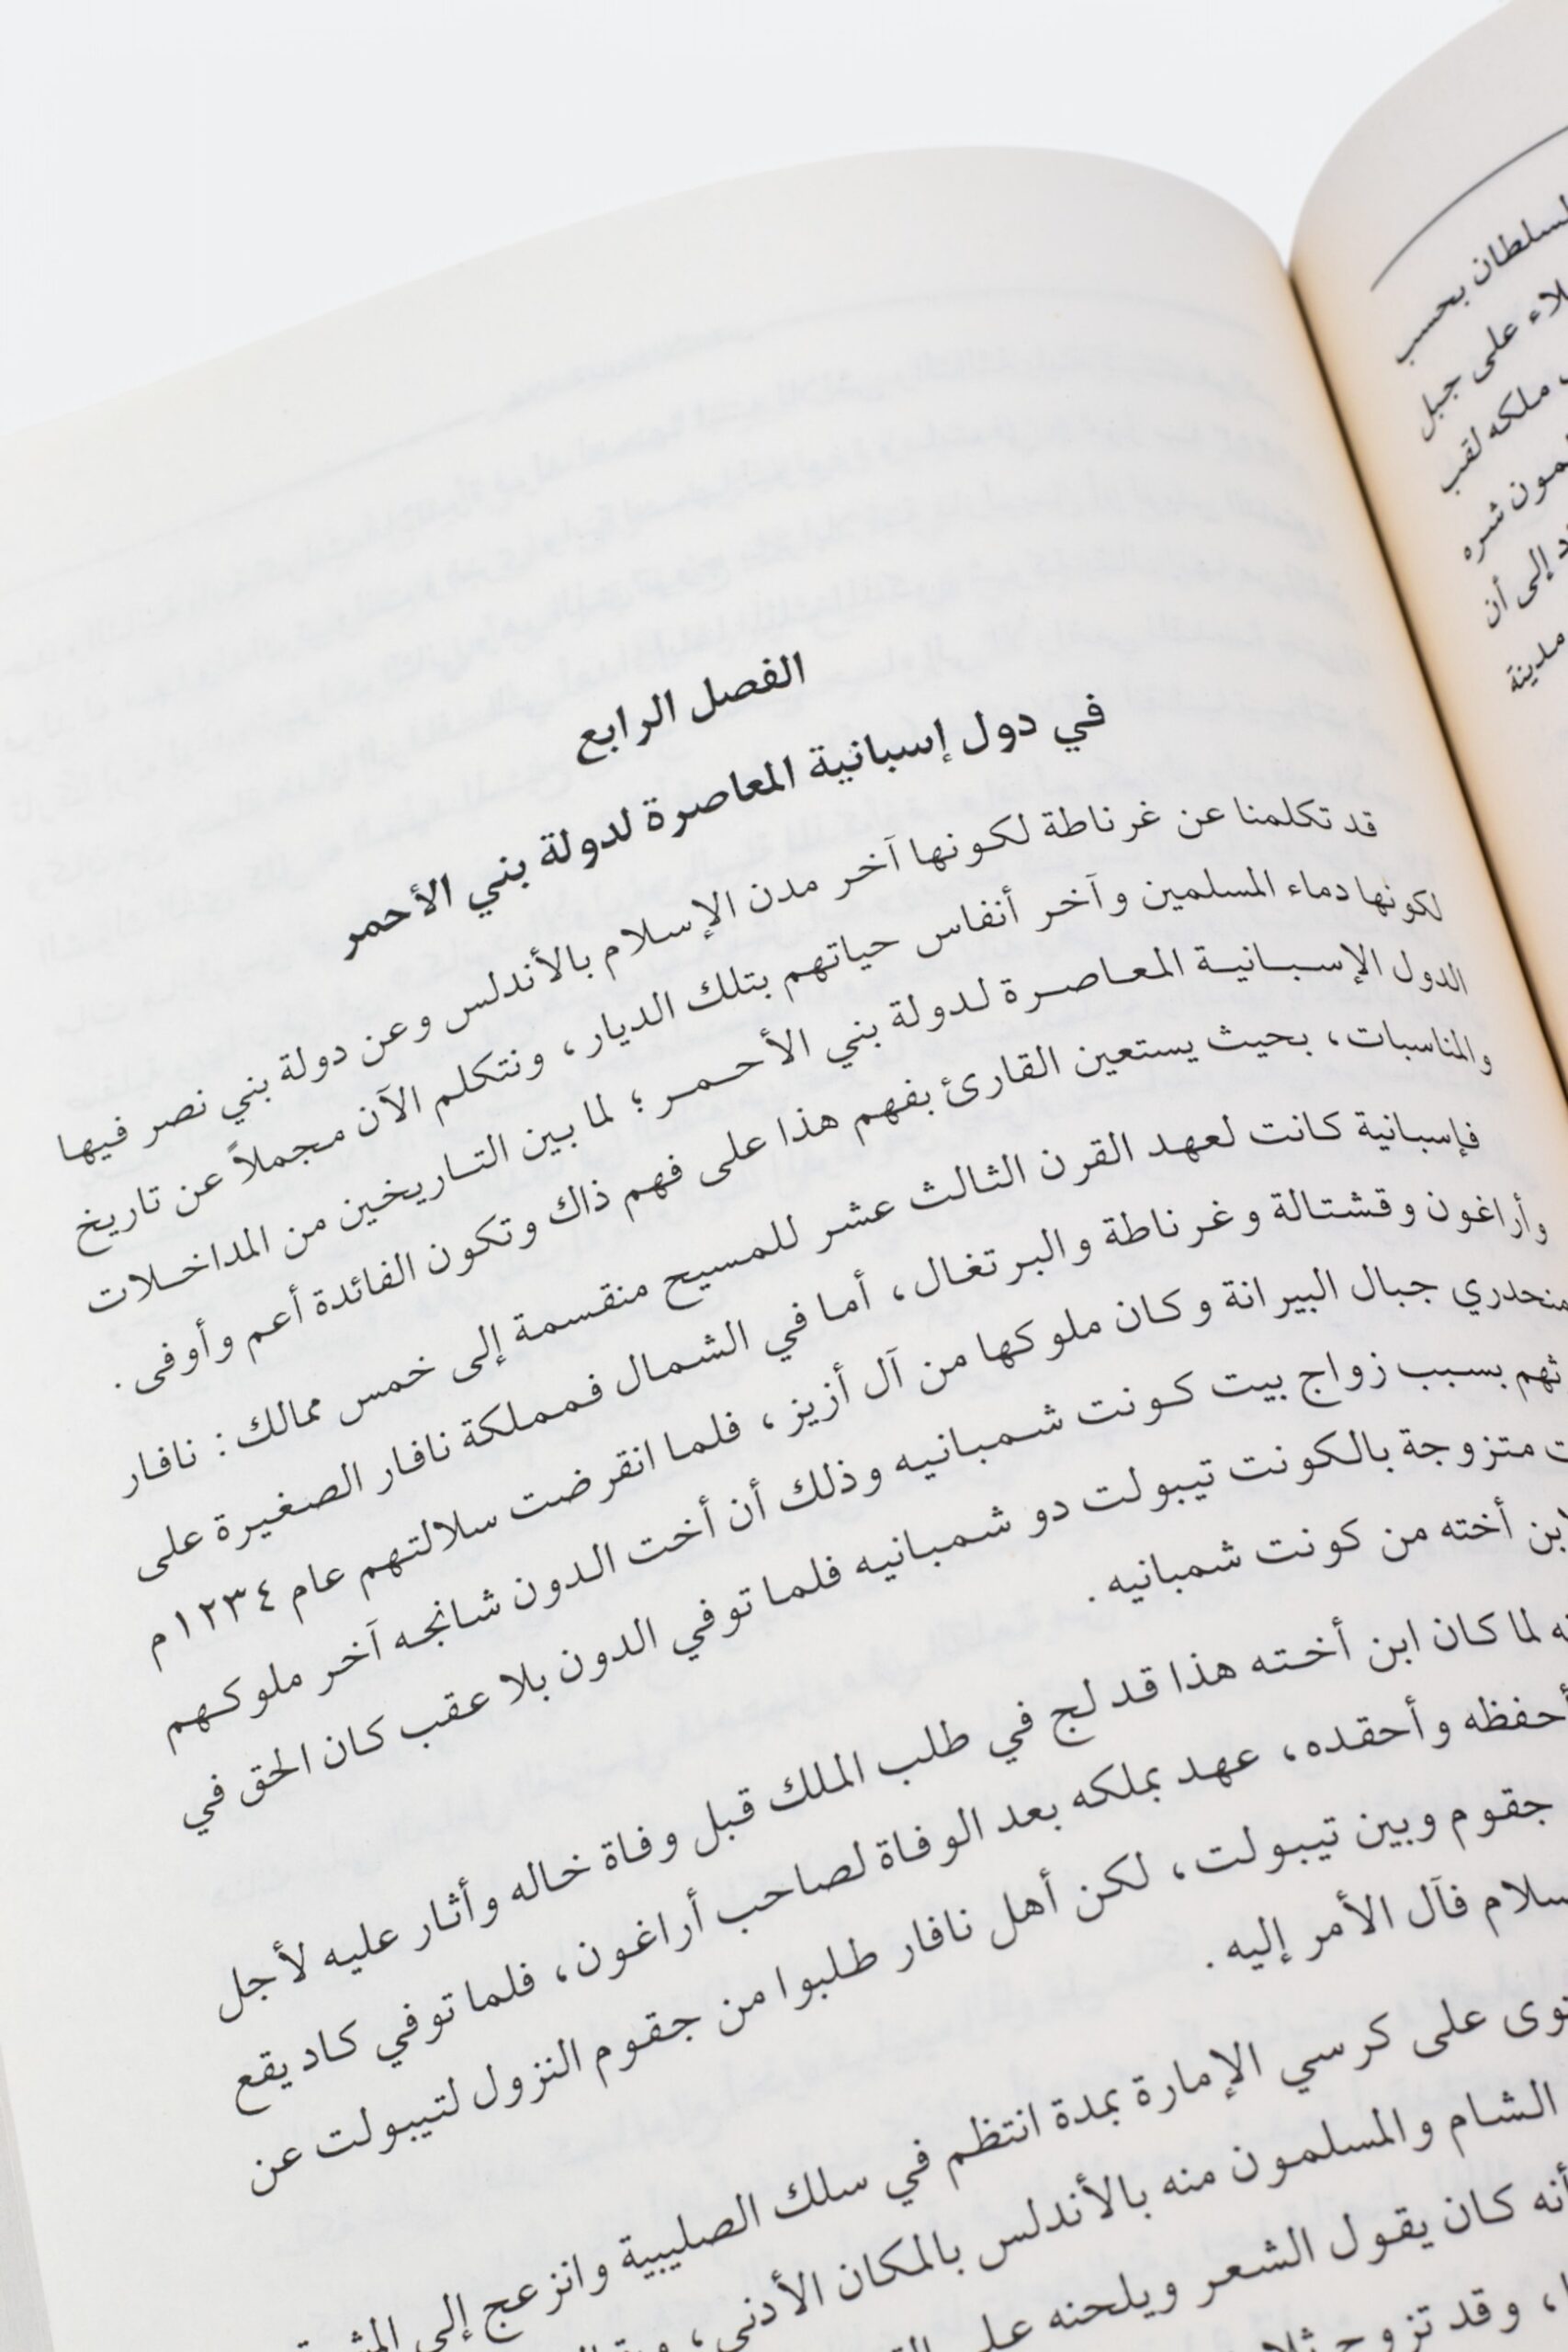 السلطان بحسب
على جبل
ملكه لقب
شره
إلى أن
مدينة
الفصل الرابع
في دول إسبانية المعاصرة لدولة بني الأحمر
قد تكلمنا عن غرناطة لكونها آخر مدن الإسلام بالأندلس وعن دولة بني نصر فيها
لكونها دماء المسلمين وآخر أنفاس حياتهم بتلك الديار، ونتكلم الآن مجملاً عن تاريخ
الدول الإسبانية المعاصرة لدولة بني الأحمر؛ لما بين التاريخين من المداخلات
والمناسبات، بحيث يستعين القارئ بفهم هذا على فهم ذاك وتكون الفائدة أعم وأوفى.
فإسبانية كانت لعهد القرن الثالث عشر للمسيح منقسمة إلى خمس ممالك: نافار
وأراغون وقشتالة وغرناطة والبرتغال، أما في الشمال فمملكة نافار الصغيرة على
منحدري جبال البيرانة وكان ملوكها من آل أزيز، فلما انقرضت سلالتهم عام ١٢٣٤م
بسبب زواج بيت كونت شمبانيه وذلك أن أخت الدون شانجه آخر ملوكهم
متزوجة بالكونت تيبولت دو شمبانيه فلما توفي الدون بلا عقب كان الحق في
ابن أخته من كونت شمبانيه.
لما كان ابن أخته هذا قد لج في طلب الملك قبل وفاة خاله وأثار عليه لأجل
أحفظه وأحقده، عهد بملكه بعد الوفاة لصاحب أراغون، فلما توفي كاد يقع
جقوم وبين تيبولت، لكن أهل نافار طلبوا من جقوم النزول لتيبولت عن
فآل الأمر إليه.
على كرسي الإمارة بمدة انتظم في سلك الصليبية وانزعج إلى
الشام والمسلمون منه بالأندلس بالمكان الأدنى،
أنه كان يقول الشعر ويلحنه على
، وقد تزوج